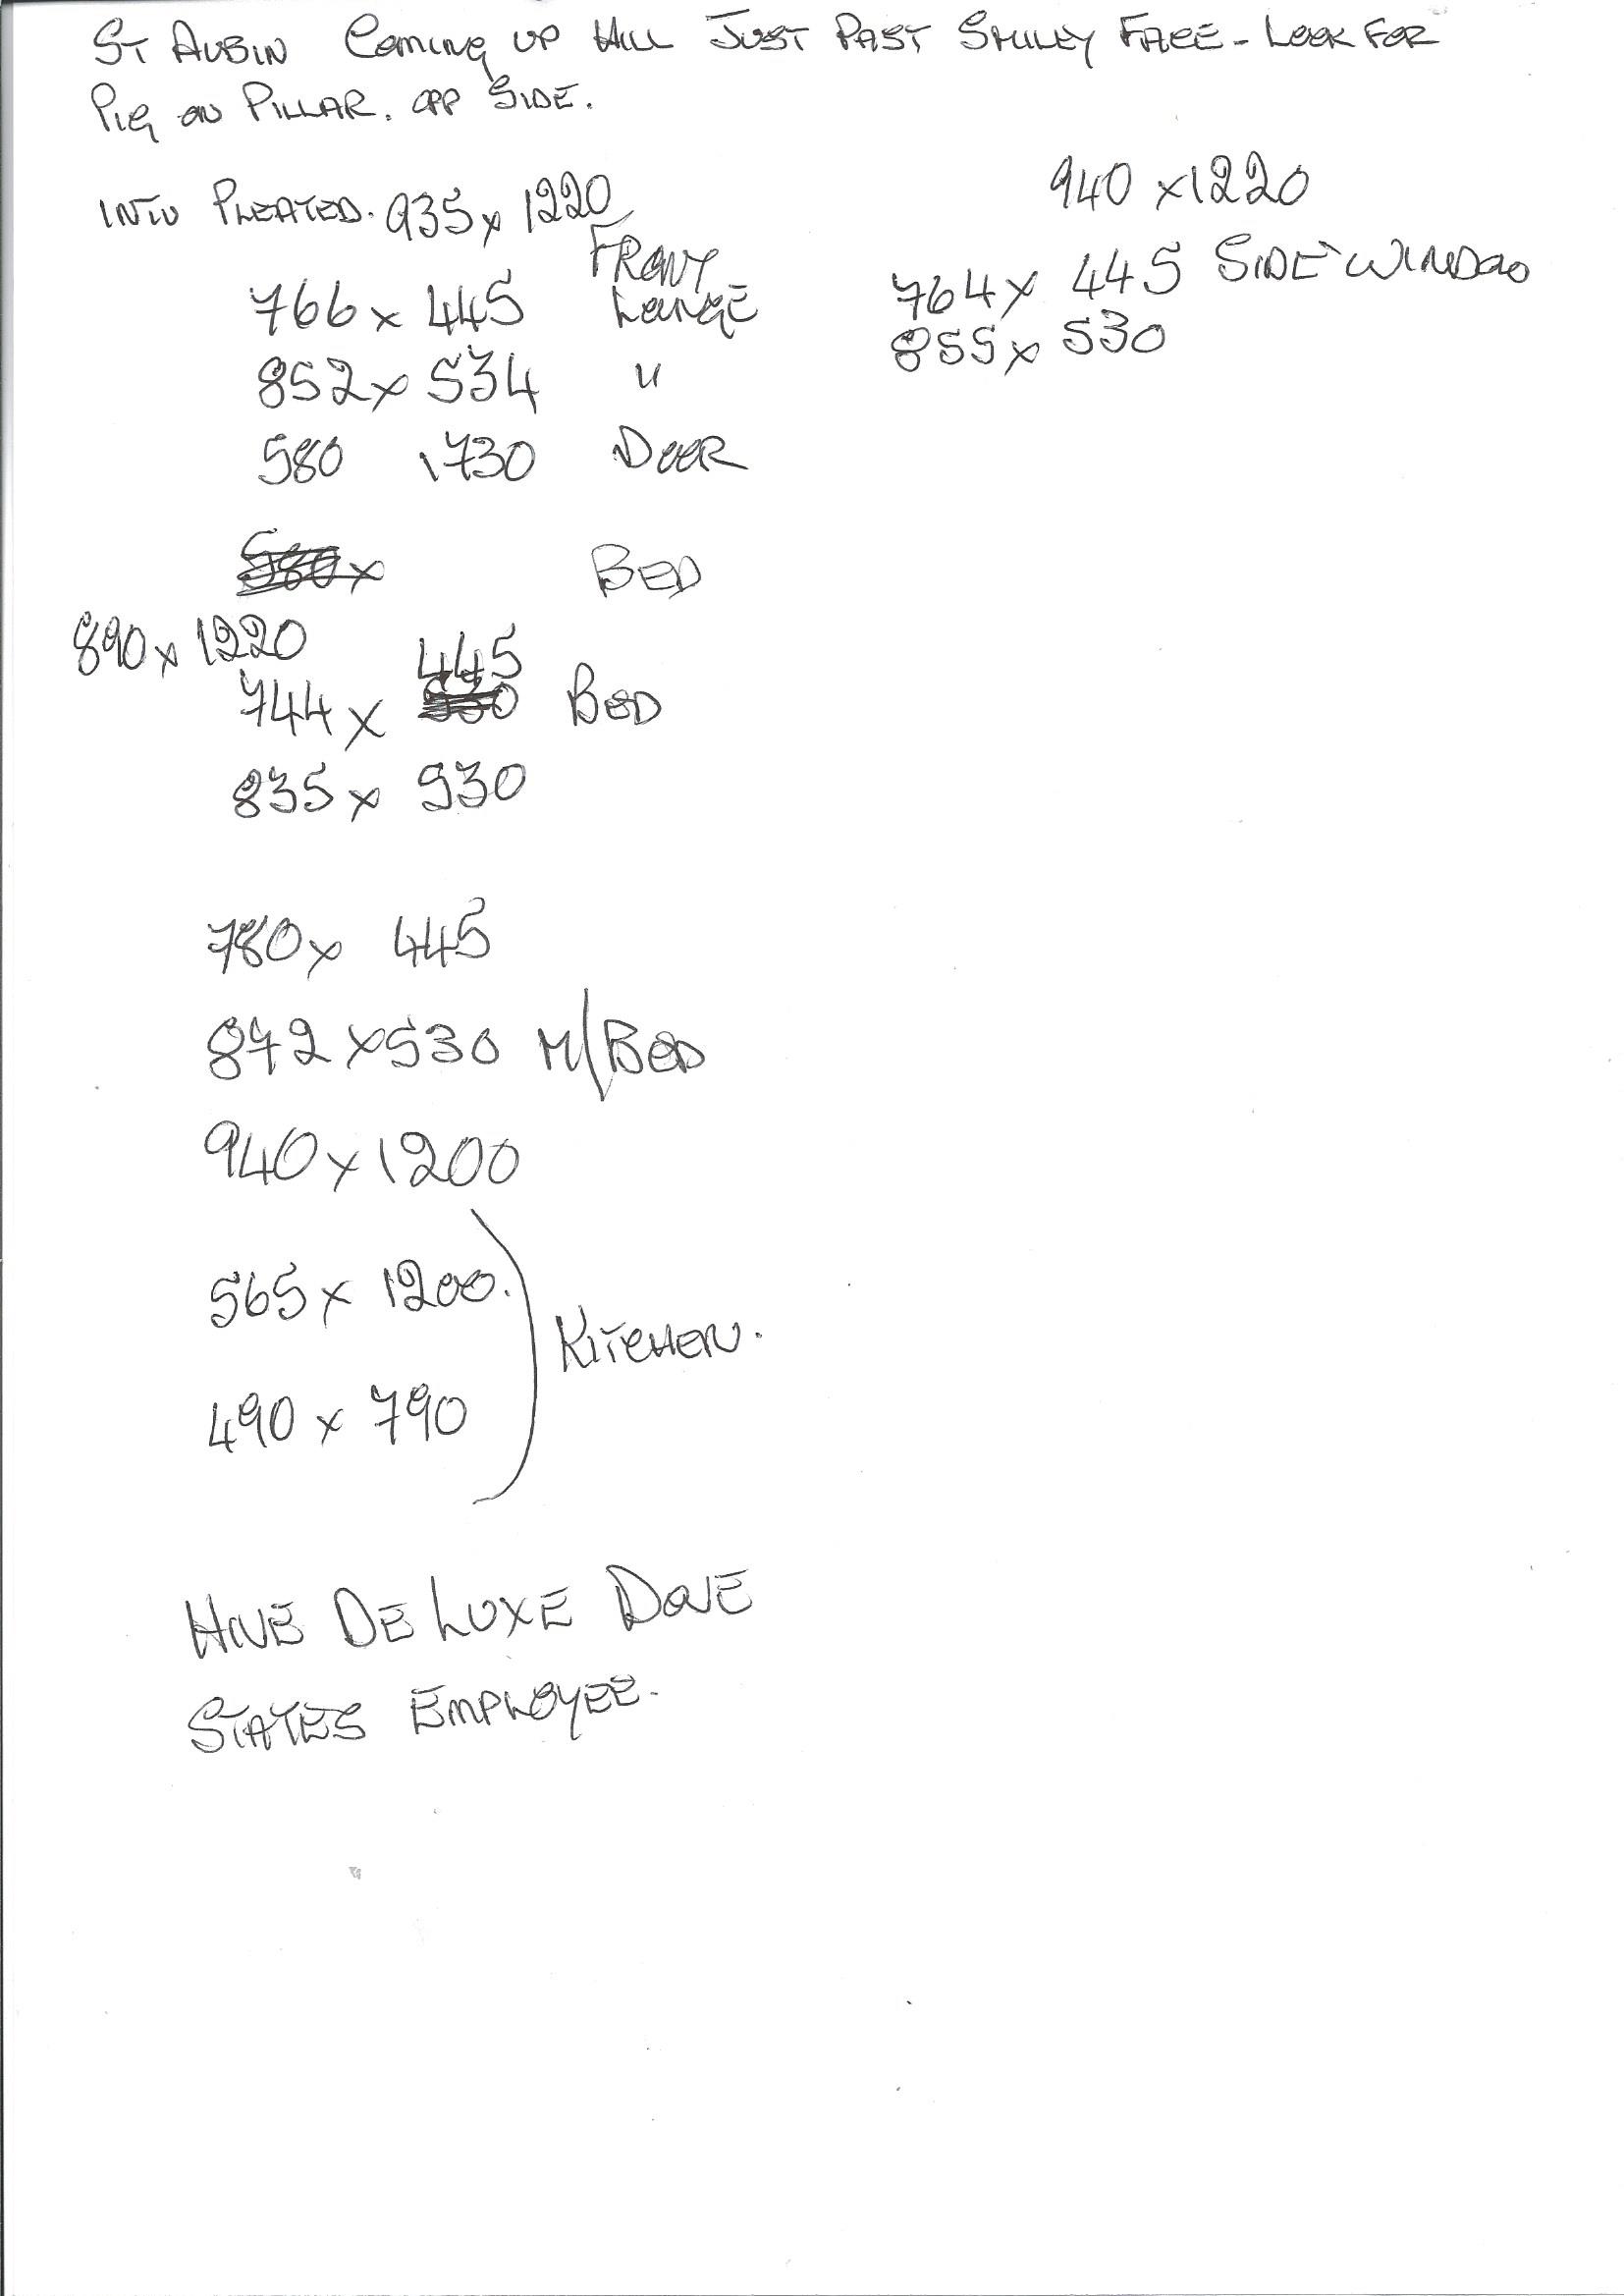 ST AUBIN COMING UP HILL JUST PAST SMILEY FACE - LOOK FOR
PIG ON PILLAR. OPP SIDE.
INTU PLEATED. 935 x 1220
940 x 1220
FRONT
766 x 445 LOUNGE
764 x 445 SIDE WINDOW
852 x 534 "
855 x 530
580 1730 DOOR
BED
890 x 1220
445
744 x BED
835 x 530
780 x 445
872 x 530 M/BED
940 x 1200
565 x 1200.
KITCHEN.
490 x 790
HIVE DE LUXE DOVE
STATES EMPLOYEE.